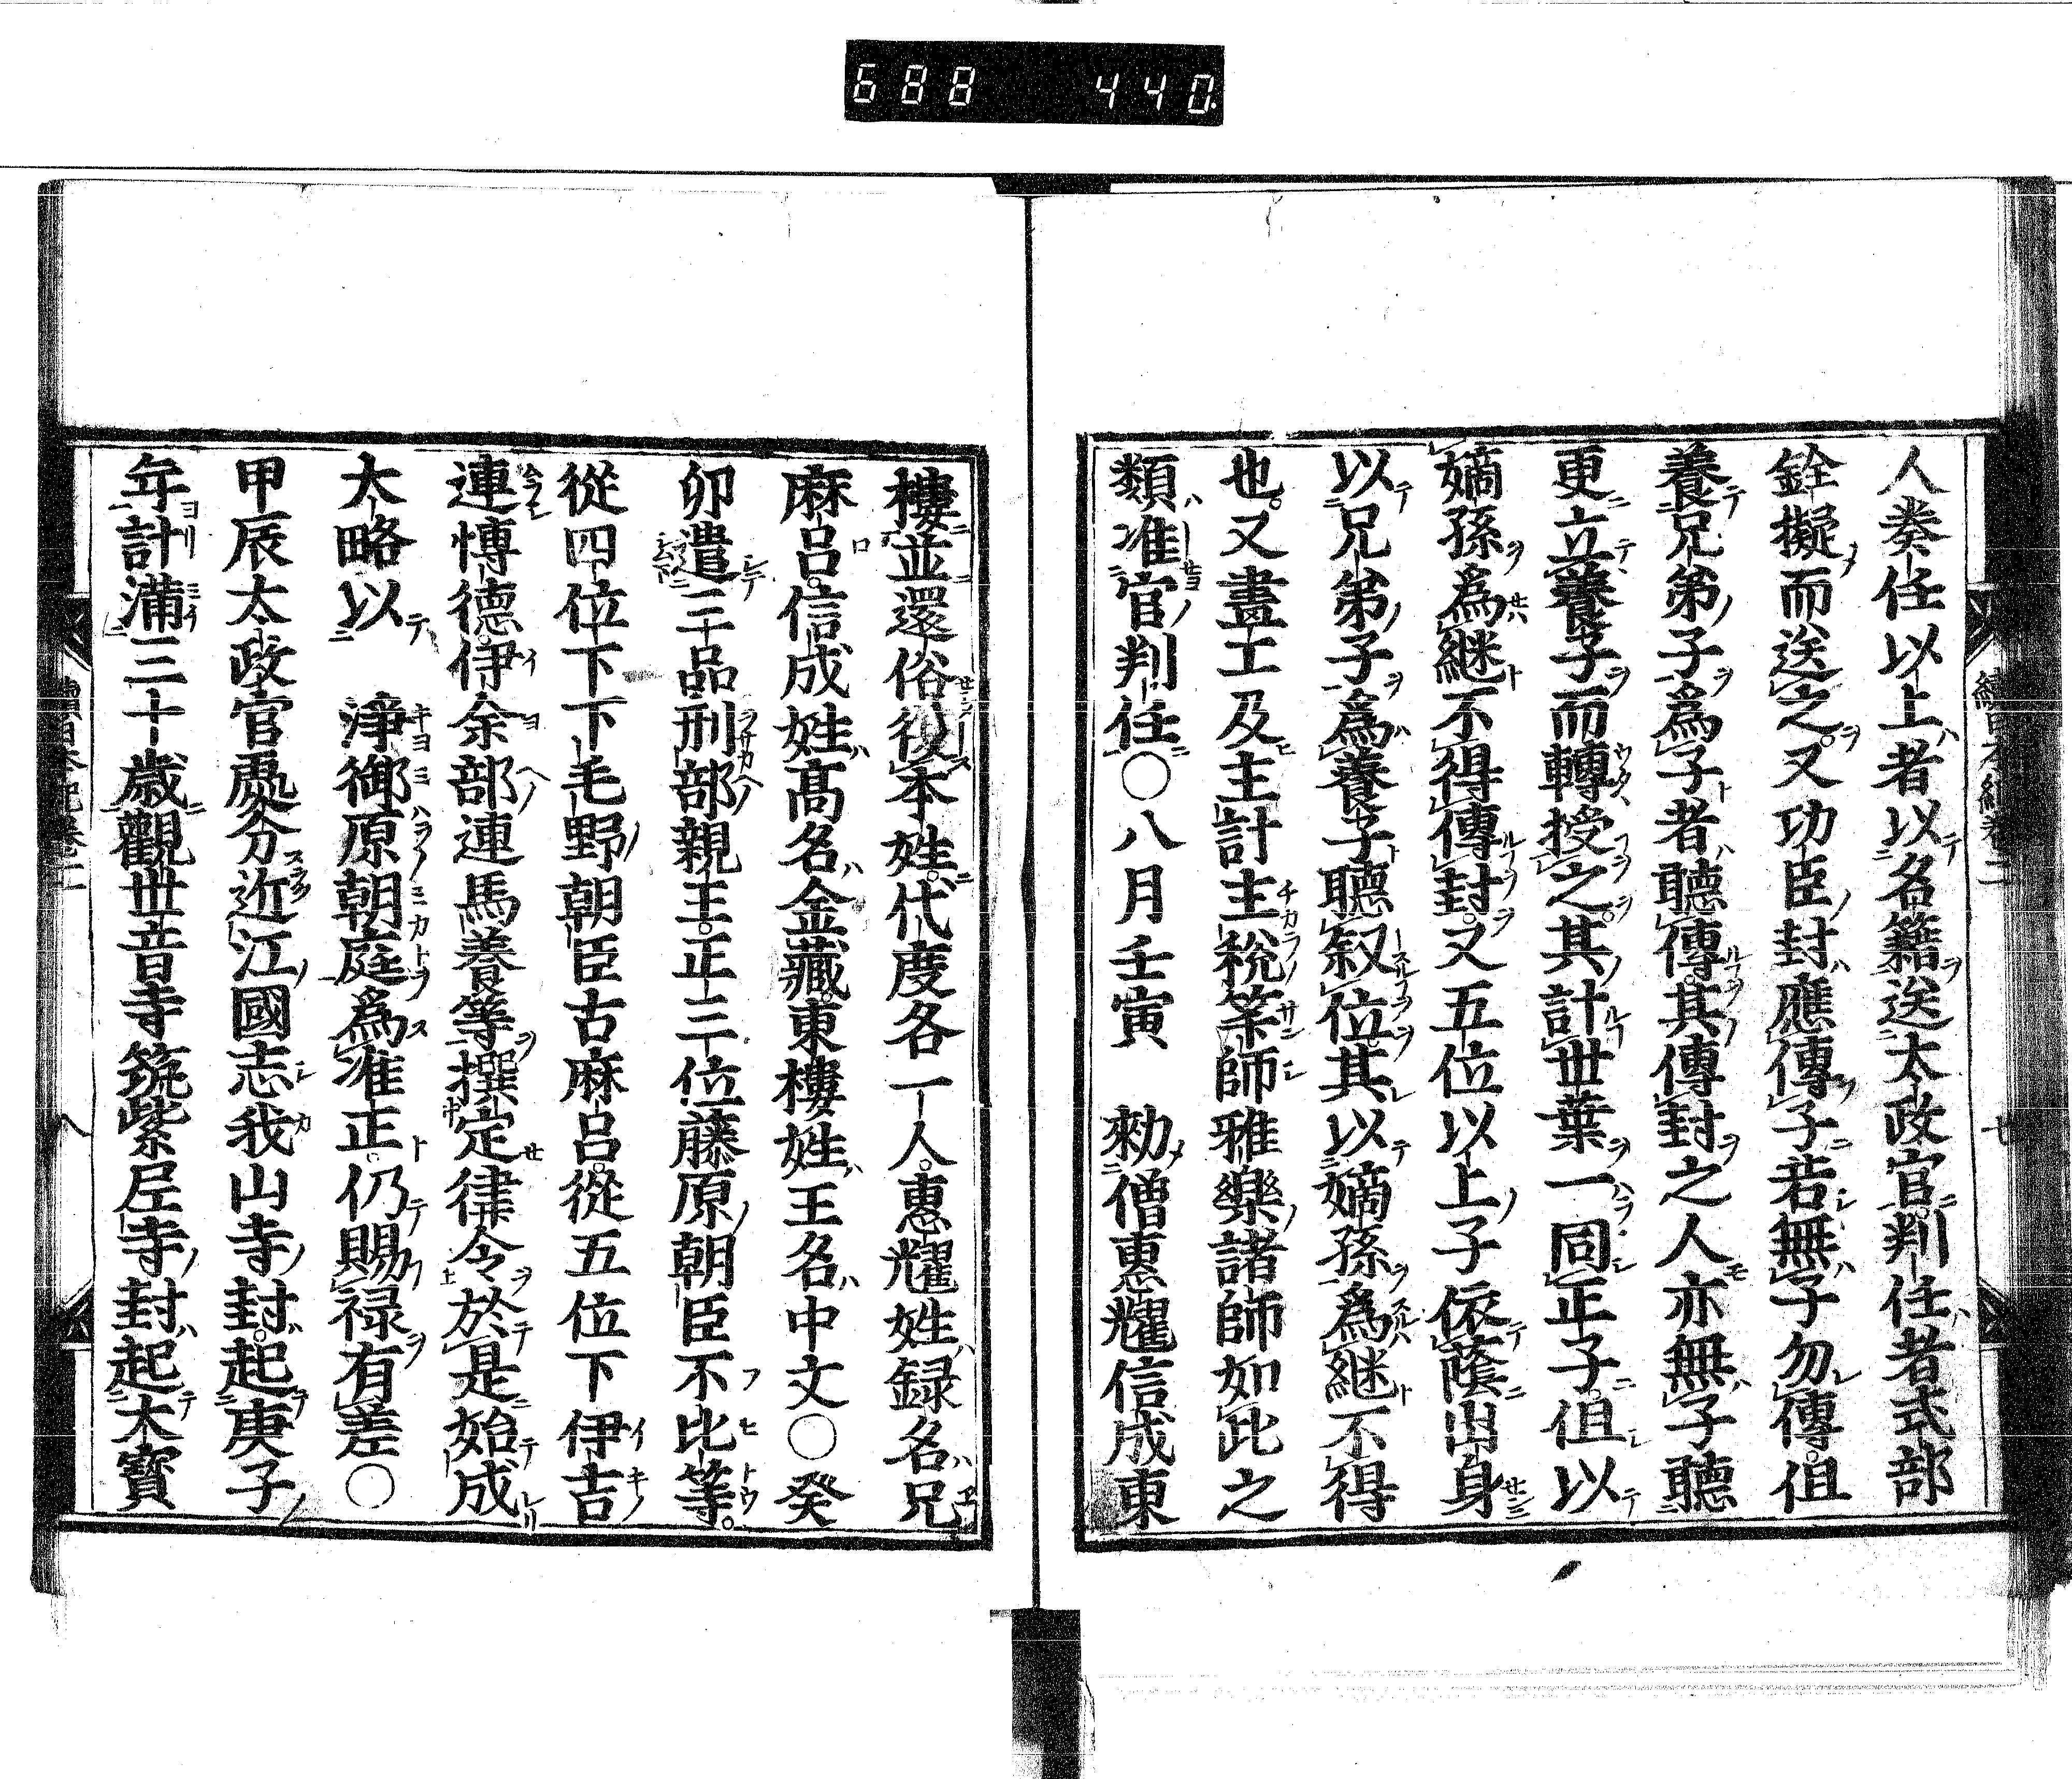 688 440.
人奏任以上者以名籍送太政官判任者式部
銓擬而送之又功臣封應傳子若無子勿傳但
養兄弟子爲子者聽傳其傳封之人亦無子聽
更立養子而轉授之其計世葉一同正子但以
嫡孫爲継不得傳封又五位以上子依蔭出身
以兄弟子爲養子聽叙位其以嫡孫爲継不得
也又畫工及主計主税筭師雅樂諸師如此之
類准官判任○八月壬寅 勑僧惠耀信成東
樓並還俗復本姓代度各一人惠耀姓録名兄
麻呂信成姓髙名金藏東樓姓王名中文○癸
卯遣三品刑部親王正三位藤原朝臣不比等
從四位下下毛野朝臣古麻呂從五位下伊吉
連愽德伊余部連馬養等撰定律令於是始成
大略以 淨御原朝庭爲准正仍賜禄有差○
甲辰太政官處分近江國志我山寺封起庚子
年計滿三十歳觀世音寺筑紫尼寺封起大寶